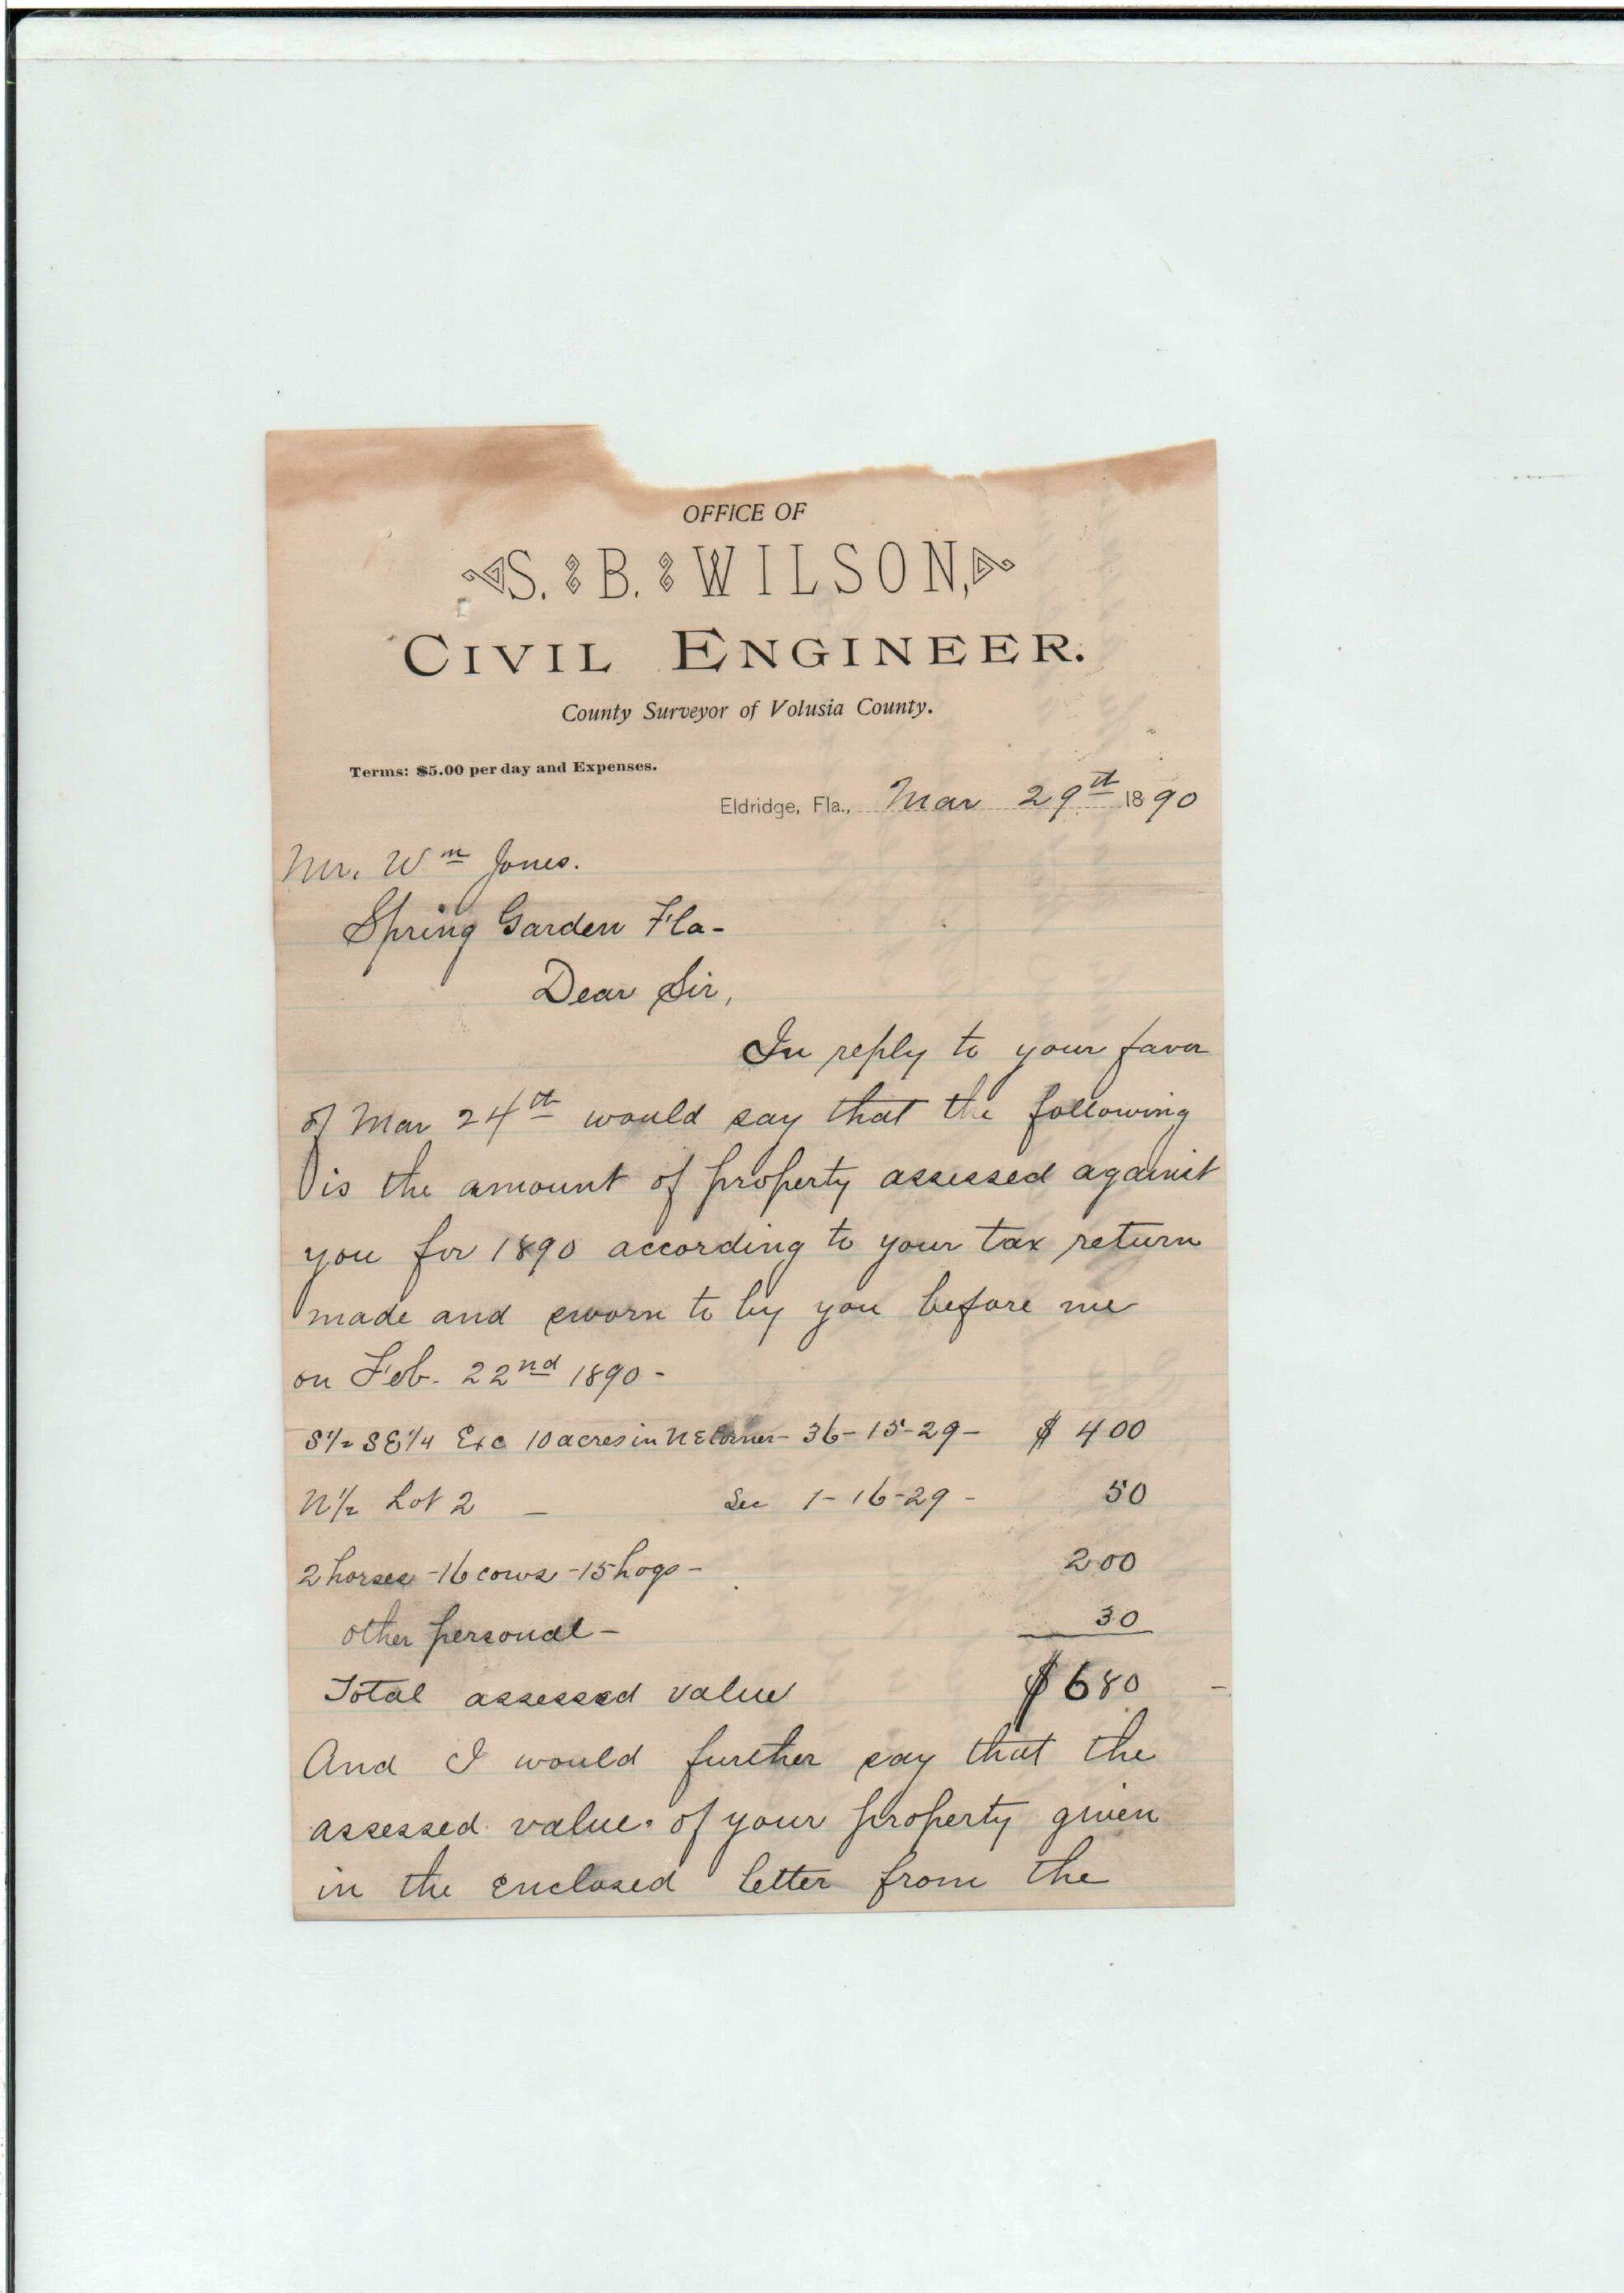 OFFICE OF
S. B. WILSON,
CIVIL ENGINEER.
County Surveyor of Volusia County.
Terms: $5.00 per day and Expenses.
Eldridge, Fla., Mar 29th 1890
Mr. Wm Jones.
Spring Garden Fla-
Dear Sir,
In reply to your favor
of Mar 24th would say that the following
is the amount of property assessed against
you for 1890 according to your tax return
made and sworn to by you before me
on Feb. 22nd 1890-
S½ SE¼ Exc 10 acres in NE Corner- 36-15-29- $ 400
N½ Lot 2 - Sec 1-16-29- 50
2 horses -16 cows -15 hogs- 200
other personal- 30
Total assessed value $680 -
And I would further say that the
assessed value. of your property given
in the enclosed letter from the